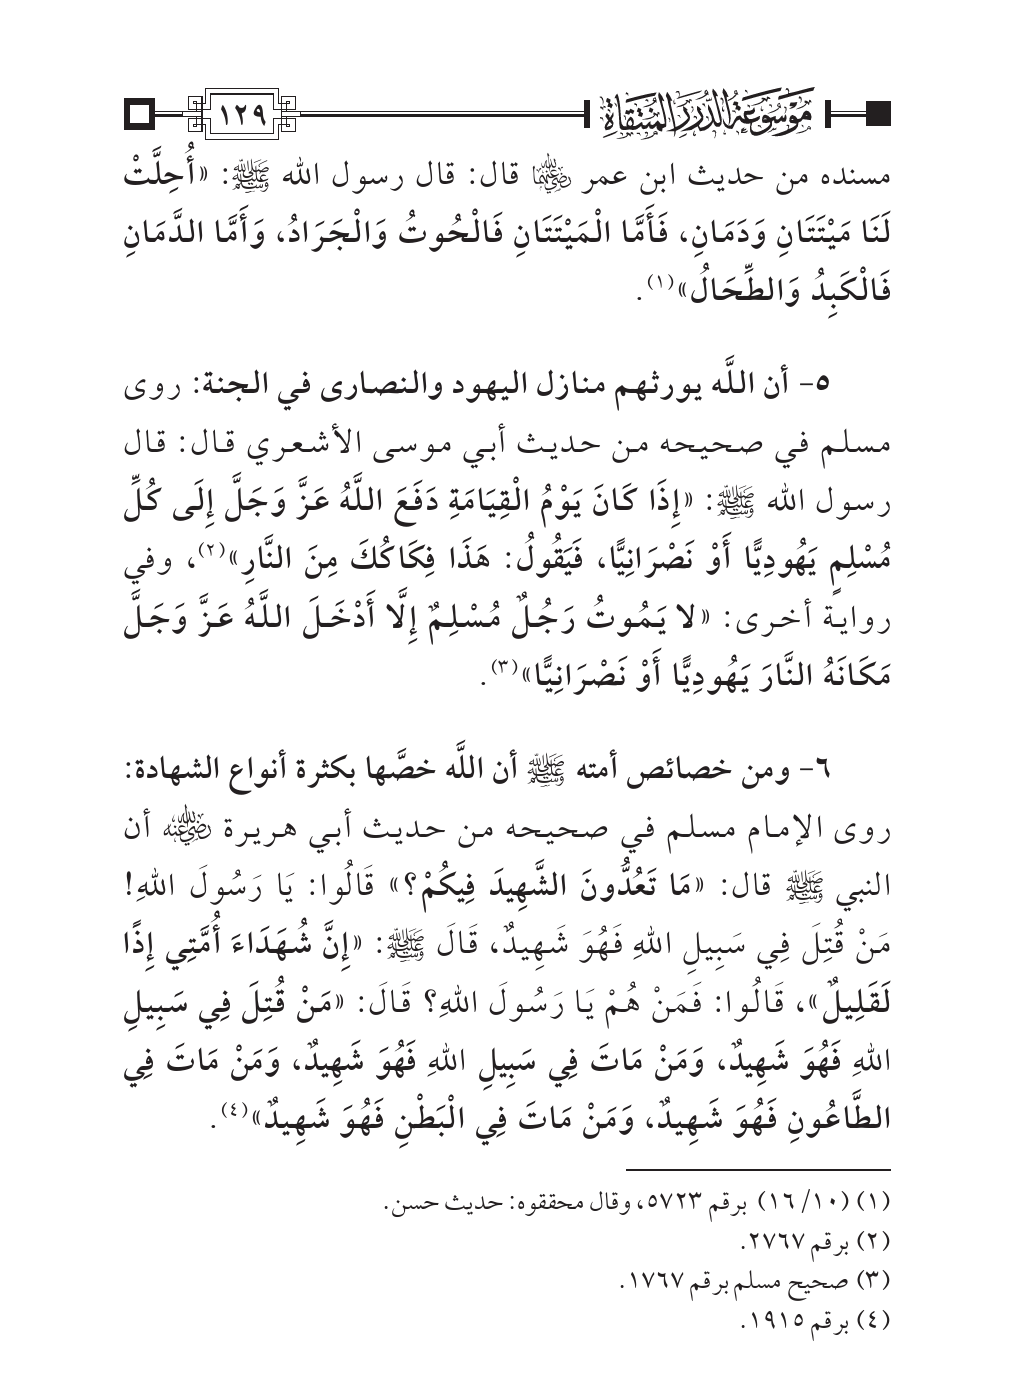 موسوعة الدرر المنتقاة ١٢٩
مسنده من حديث ابن عمر رضي الله عنهما قال: قال رسول الله ﷺ: «أُحِلَّتْ
لَنَا مَيْتَتَانِ وَدَمَانِ، فَأَمَّا الْمَيْتَتَانِ فَالْحُوتُ وَالْجَرَادُ، وَأَمَّا الدَّمَانِ
فَالْكَبِدُ وَالطِّحَالُ»(١).
٥- أن اللَّه يورثهم منازل اليهود والنصارى في الجنة: روى
مسلم في صحيحه من حديث أبي موسى الأشعري قال: قال
رسول الله ﷺ: «إِذَا كَانَ يَوْمُ الْقِيَامَةِ دَفَعَ اللَّهُ عَزَّ وَجَلَّ إِلَى كُلِّ
مُسْلِمٍ يَهُودِيًّا أَوْ نَصْرَانِيًّا، فَيَقُولُ: هَذَا فِكَاكُكَ مِنَ النَّارِ»(٢)، وفي
رواية أخرى: «لا يَمُوتُ رَجُلٌ مُسْلِمٌ إِلَّا أَدْخَلَ اللَّهُ عَزَّ وَجَلَّ
مَكَانَهُ النَّارَ يَهُودِيًّا أَوْ نَصْرَانِيًّا»(٣).
٦- ومن خصائص أمته ﷺ أن اللَّه خصَّها بكثرة أنواع الشهادة:
روى الإمام مسلم في صحيحه من حديث أبي هريرة رضي الله عنه أن
النبي ﷺ قال: «مَا تَعُدُّونَ الشَّهِيدَ فِيكُمْ؟» قَالُوا: يَا رَسُولَ اللهِ!
مَنْ قُتِلَ فِي سَبِيلِ اللهِ فَهُوَ شَهِيدٌ، قَالَ ﷺ: «إِنَّ شُهَدَاءَ أُمَّتِي إِذًا
لَقَلِيلٌ»، قَالُوا: فَمَنْ هُمْ يَا رَسُولَ اللهِ؟ قَالَ: «مَنْ قُتِلَ فِي سَبِيلِ
اللهِ فَهُوَ شَهِيدٌ، وَمَنْ مَاتَ فِي سَبِيلِ اللهِ فَهُوَ شَهِيدٌ، وَمَنْ مَاتَ فِي
الطَّاعُونِ فَهُوَ شَهِيدٌ، وَمَنْ مَاتَ فِي الْبَطْنِ فَهُوَ شَهِيدٌ»(٤).
(١) (١٠/ ١٦) برقم ٥٧٢٣، وقال محققوه: حديث حسن.
(٢) برقم ٢٧٦٧.
(٣) صحيح مسلم برقم ١٧٦٧.
(٤) برقم ١٩١٥.